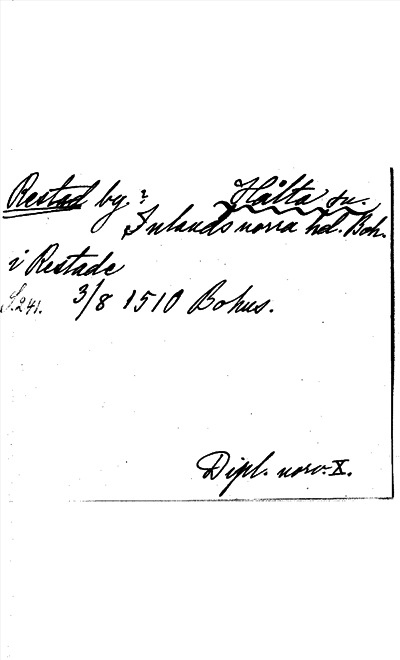 Restad by? Hålta sn.
Inlands norra hd. Boh.
i Restade
S. 241. 3/8 1510 Bohus.
Dipl. norv. X.